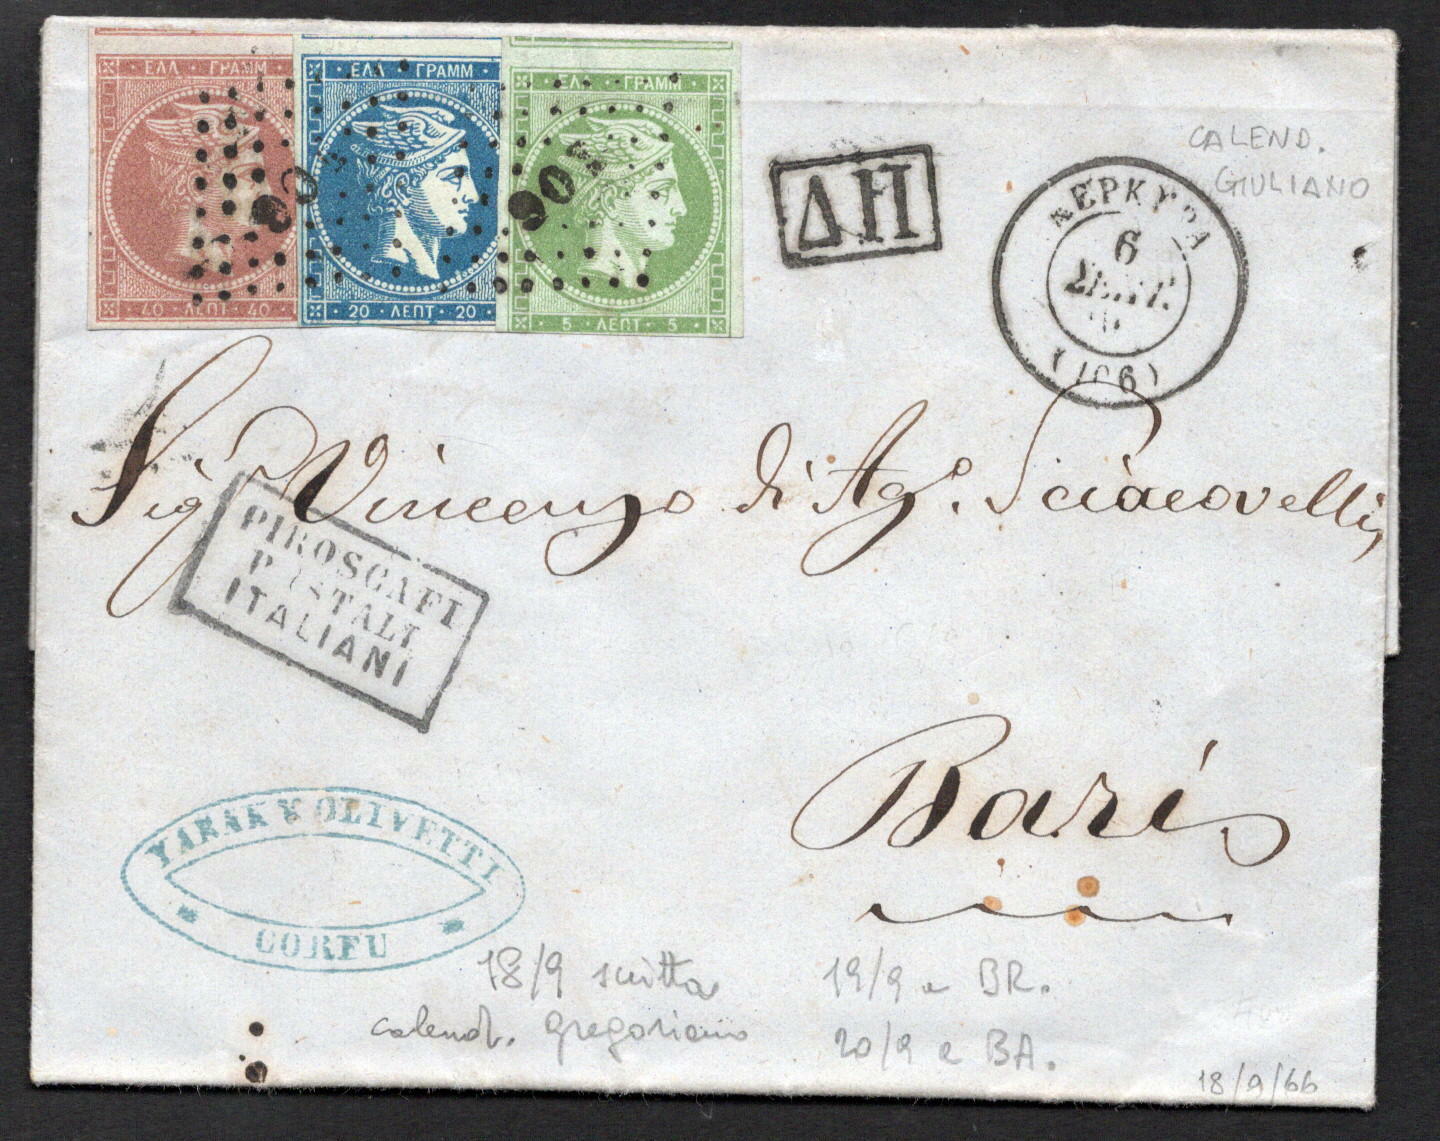 ΕΛΛ · ΓΡΑΜΜ
40 · ΛΕΠΤ · 40
ΕΛΛ · ΓΡΑΜΜ
20 · ΛΕΠΤ · 20
ΕΛΛ · ΓΡΑΜΜ
5 · ΛΕΠΤ · 5
ΔΗ
CALEND.
GIULIANO
ΚΕΡΚΥΡΑ
6
ΣΕΠΤ.
(106)
Sig Vincenzo di Ag.º Sciacovelli
PIROSCAFI
POSTALI
ITALIANI
Bari
YARAK Y OLIVETTI
CORFU
18/9 scritta
calend. gregoriano
19/9 a BR.
20/9 a BA.
18/9/66